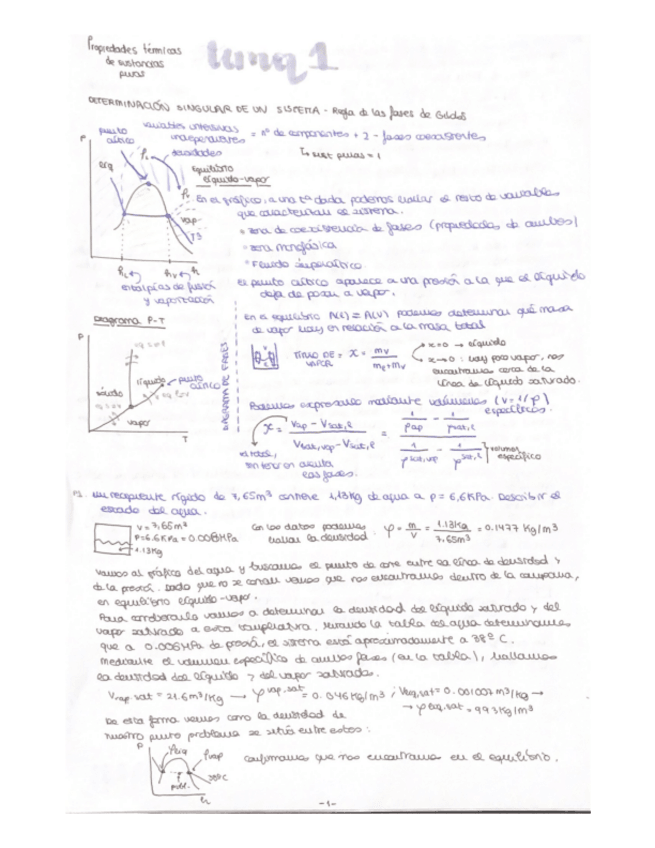 Propiedades térmicas
de sustancias
puras
tema 1
DETERMINACIÓN SINGULAR DE UN SISTEMA - Regla de las fases de Gibbs
variables intensivas
independientes = nº de componentes + 2 - fases coexistentes
sust puras = 1
punto
crítico
densidades
P
líq
equilibrio
líquido-vapor
vap
h
entalpías de fusión
y vaporización
En el gráfico, a una tª dada podemos evaluar el resto de variables
que caracterizan el sistema.
zona de coexistencia de fases (propiedades de ambos)
zona monofásica
Fluido supercrítico.
El punto crítico aparece a una presión a la que el líquido
deja de pasar a vapor.
En el equilibrio A(l) = A(v) podemos determinar qué masa
de vapor hay en relación a la masa total
Diagrama P-T
P
sólido
líquido
punto
crítico
vapor
T
DIAGRAMA DE FASES
TÍTULO DE
VAPOR = x = mv / ml+mv
x=0 → líquido
x→0 : hay poco vapor, nos
encontramos cerca de la
línea de líquido saturado.
Podemos expresarlo mediante volúmenes (v = 1/ρ)
específicos.
x =
Vsat,vap - Vsat,l
el total,
sin tener en cuenta
las fases.
específico
P1. Un recipiente rígido de 7,65m³ contiene 1,13kg de agua a p = 6,6KPa. Describir el
estado del agua.
V = 7,65m³
P=6.6KPa
1.13Kg
Con los datos podemos
evaluar la densidad: ρ = m/V = 1.13kg/7.65m³ = 0.1477 Kg/m³
Vamos al gráfico del agua y buscamos el punto de corte entre la línea de densidad y
de la presión. Dado que no se cortan vemos que nos encontramos dentro de la campana,
en equilibrio líquido-vapor.
Para corroborarlo vamos a determinar la densidad del líquido saturado y del
vapor saturado a esta temperatura. Mirando la tabla del agua determinamos
que a de presión, el sistema está aproximadamente a 38º C.
Mediante el volumen específico de ambas fases (en la tabla), hallamos
la densidad del líquido y del vapor saturado.
Vvap sat = 21.6m³/kg → ρ vap.sat = 0.046kg/m³ ; Vliq,sat = 0.001007 m³/kg →
→ ρ liq.sat = 993kg/m³
De esta forma vemos como la densidad de
nuestro punto problema se sitúa entre estos:
P
ρliq
ρvap
38ºC
h
confirmamos que nos encontramos en el equilibrio.
-1-